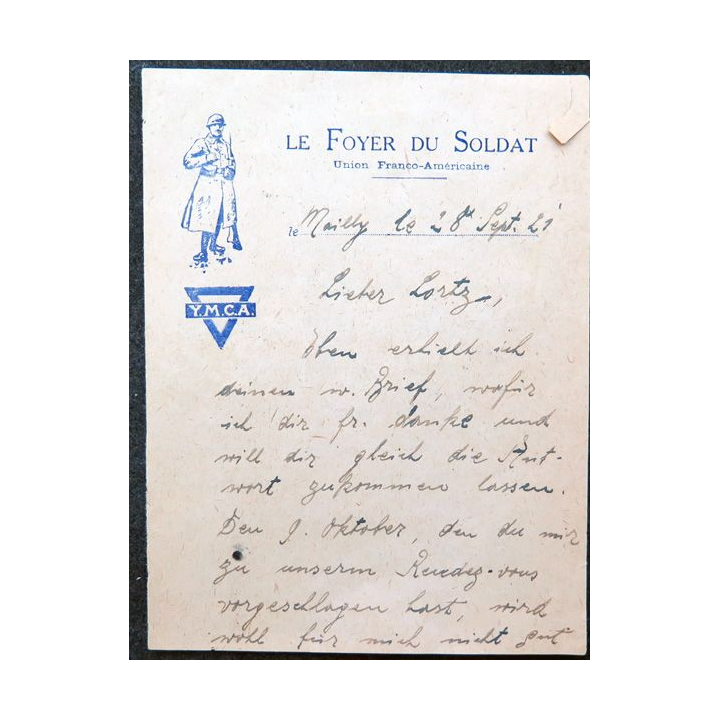 LE FOYER DU SOLDAT
Union Franco-Américaine
le Mailly le 28t Sept. 21
Y.M.C.A.
Lieber Lortz,
Eben erhielt ich
deinen w. Brief, wofür
ich dir fr. danke und
will dir gleich die Ant-
wort zukommen lassen.
Den 9. Oktober, den du mir
zu unserm Rendez-vous
vorgeschlagen hast, wird
wohl für mich nicht gut